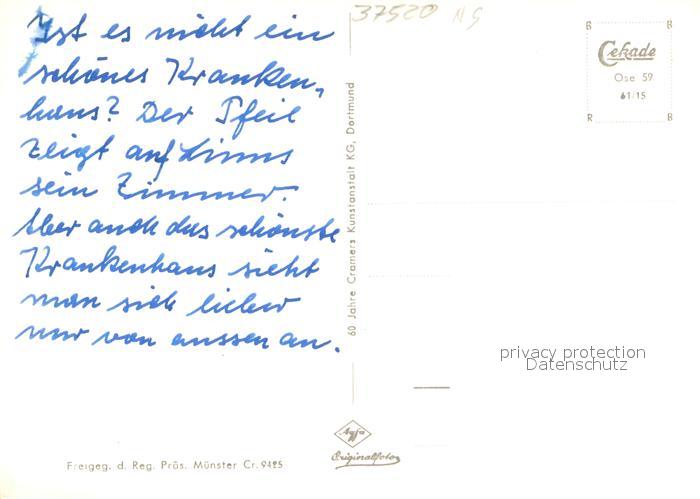 37520 NS
Ist es nicht ein
schönes Kranken-
haus? Der Pfeil
zeigt auf
sein Zimmer.
Aber auch das schönste
Krankenhaus sieht
man sich lieber
nur von aussen an.
60 Jahre Cramers Kunstanstalt KG, Dortmund
B B
Cekade
Ose 59
61/15
R B
privacy protection
Datenschutz
Agfa
Originalfoto
Freigeg. d. Reg. Präs. Münster Cr. 9425